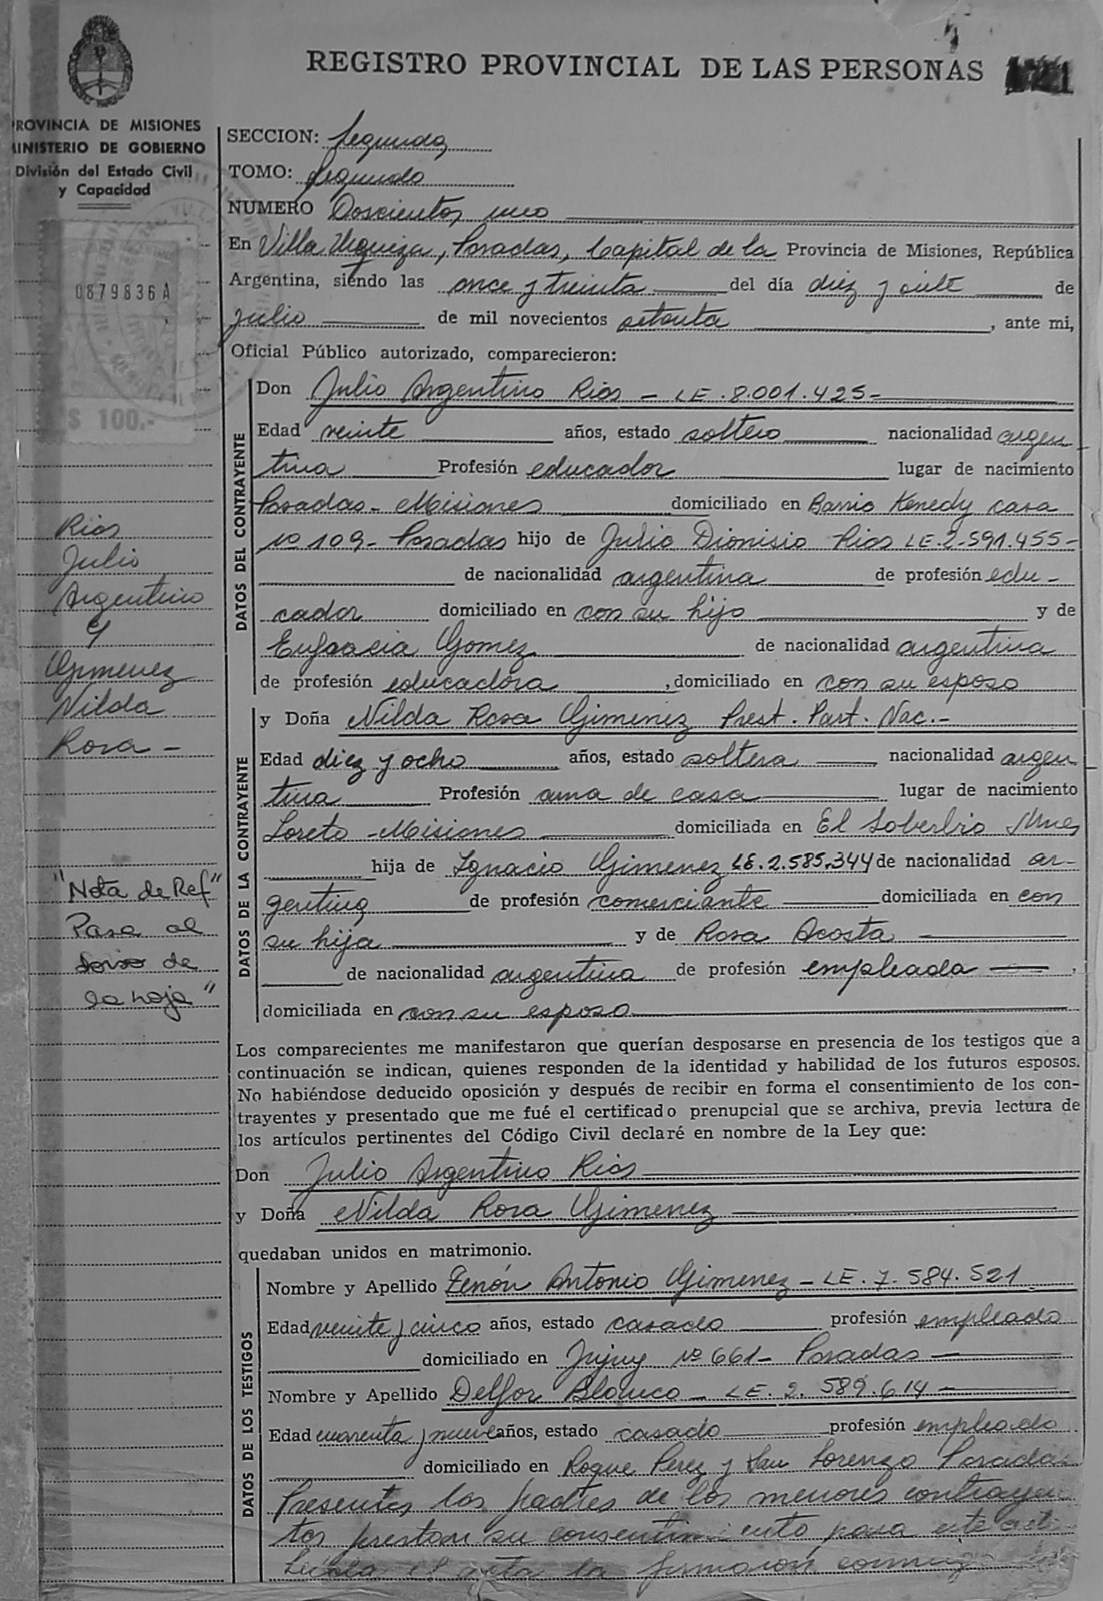 REGISTRO PROVINCIAL DE LAS PERSONAS
PROVINCIA DE MISIONES
MINISTERIO DE GOBIERNO
División del Estado Civil
y Capacidad
0879836A
$ 100.-
Rios
Julio
Argentino
y
Gimenez
Nilda
Rosa -
"Nota de Ref"
Pasa al
dorso de
la hoja"
SECCION: Segunda
TOMO: Segundo
NUMERO Doscientos uno
En Villa Urquiza, Posadas, Capital de la Provincia de Misiones, República
Argentina, siendo las once y treinta del día diez y siete de
julio de mil novecientos setenta, ante mi,
Oficial Público autorizado, comparecieron:
DATOS DEL CONTRAYENTE
Don Julio Argentino Rios - LE. 8.001.425-
Edad veinte años, estado soltero nacionalidad argen
tina Profesión educador lugar de nacimiento
Posadas - Misiones domiciliado en Barrio Kenedy casa
nº 109- Posadas hijo de Julio Dionisio Rios LE.2-591.455-
de nacionalidad argentina de profesión edu-
cador domiciliado en con su hijo y de
Eufracia Gomez de nacionalidad argentina
de profesión educadora, domiciliado en con su esposo
DATOS DE LA CONTRAYENTE
y Doña Nilda Rosa Gimenez Prest. Part. Nac.-
Edad diez y ocho años, estado soltera nacionalidad argen
tina Profesión ama de casa lugar de nacimiento
Loreto - Misiones domiciliada en El Soberbio Mnes
hija de Ignacio Gimenez LE.2.585.344 de nacionalidad ar-
gentina de profesión comerciante domiciliada en con
su hija y de Rosa Acosta
de nacionalidad argentina de profesión empleada,
domiciliada en con su esposo
Los comparecientes me manifestaron que querían desposarse en presencia de los testigos que a
continuación se indican, quienes responden de la identidad y habilidad de los futuros esposos.
No habiéndose deducido oposición y después de recibir en forma el consentimiento de los con-
trayentes y presentado que me fué el certificado prenupcial que se archiva, previa lectura de
los artículos pertinentes del Código Civil declaré en nombre de la Ley que:
Don Julio Argentino Rios
y Doña Nilda Rosa Gimenez
quedaban unidos en matrimonio.
DATOS DE LOS TESTIGOS
Nombre y Apellido Zenón Antonio Gimenez - LE. 7. 584. 521
Edad veinte y cinco años, estado casado profesión empleado
domiciliado en Jujuy nº 661- Posadas
Nombre y Apellido Delfor Blanco - LE. 2. 589. 614 -
Edad cuarenta y nueve años, estado casado profesión empleado
domiciliado en Roque Perez y San Lorenzo Posadas
Presentes los padres de los menores contrayen
tes prestan su consentimiento para este act
Leída el acta la firmaron conmigo